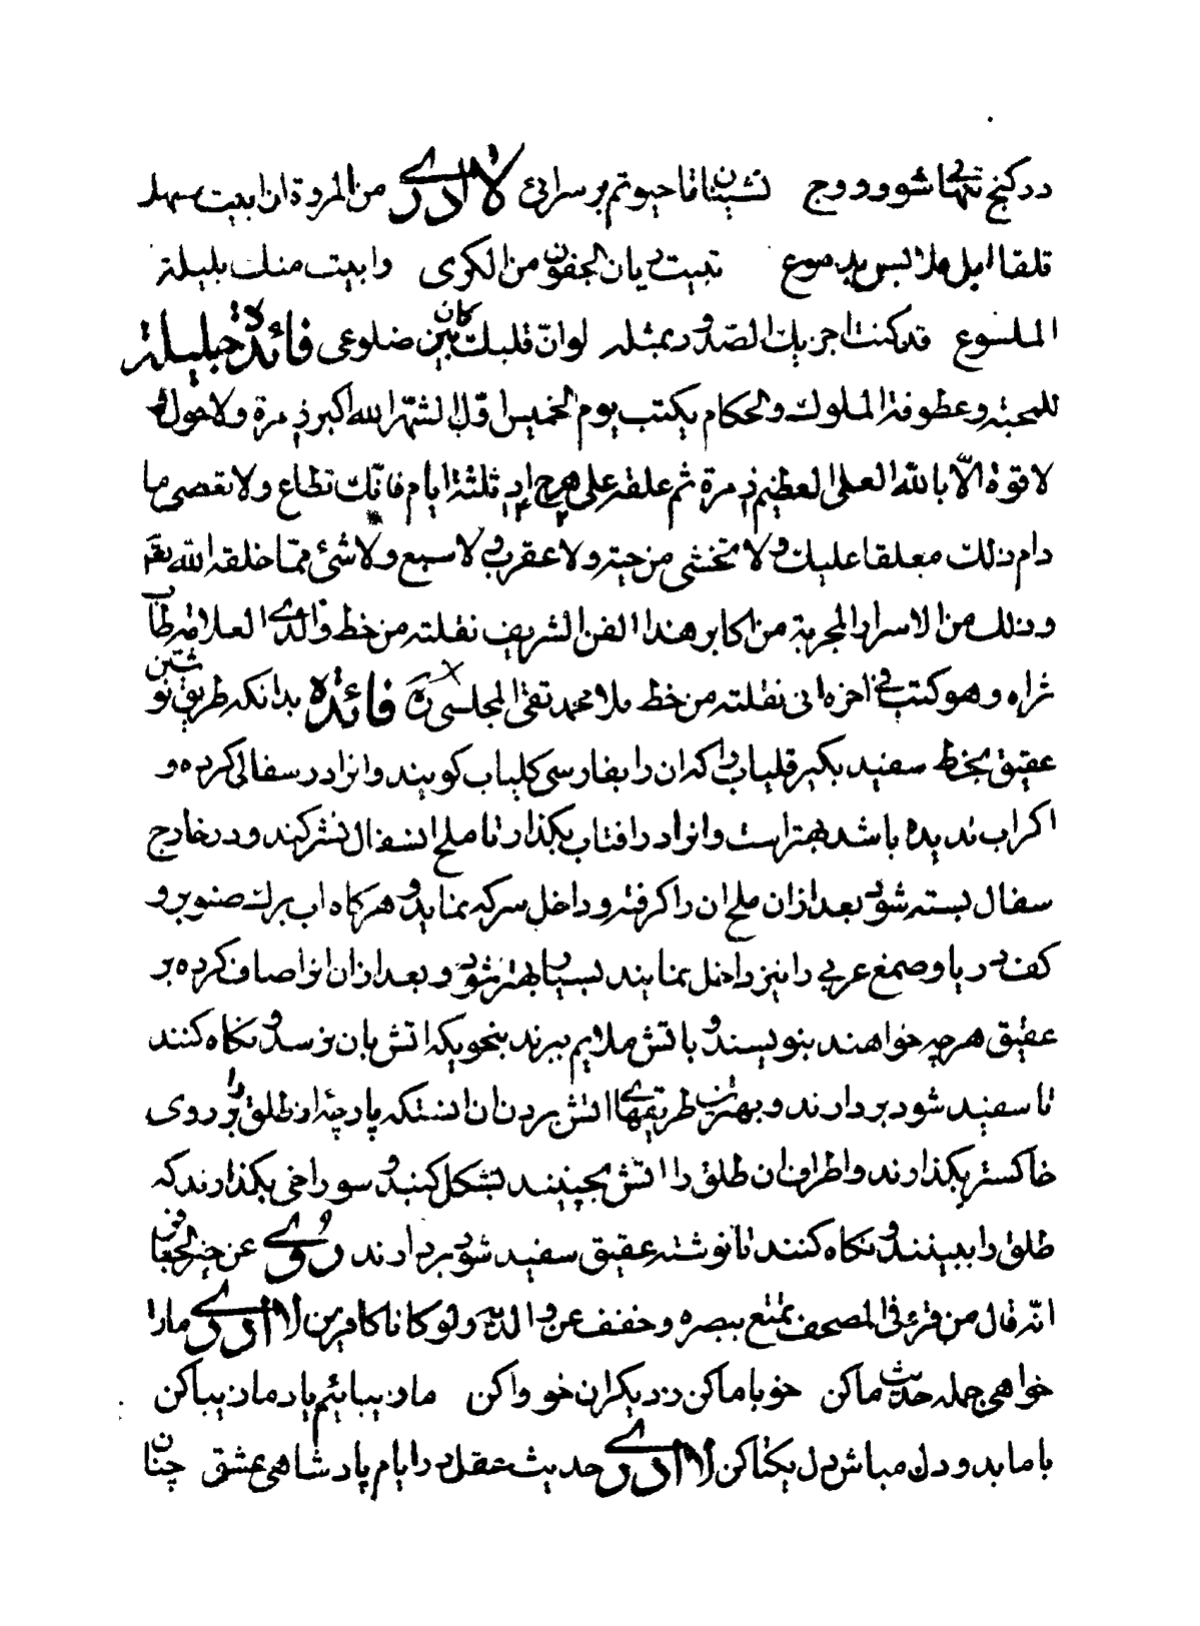 در کنج تنهائی شو و روج نشینانا تا حیوتم بر سرآئی لا ادری من المروة ان ابیت مسهد
قلقا ابل ملابس بدموع تبیت ریان الجفون من الکری وابیت منك بلیلة
الملسوع قد کنت اجزیك الصدود بمثله لو ان قلبك کان بین ضلوعی فائدة جلیلة
للمحبة وعطوفة الملوك والحکام یکتب یوم الخمیس اول الشهر الله اکبر مرة ولا حول و
لا قوة الا بالله العلی العظیم مرة ثم علقه علی ثلثة ایام فانك تطاع ولا تعصی ما
دام ذلك معلقا علیك ولا تخشی من حیة ولا عقرب ولا سبع ولا شئ مما خلقه الله تعم
وذلك من الاسرار المجربة من اکابر هذا الفن الشریف نقلته من خط والدی العلامة طاب
ثراه وهو کتب فی اخره انی نقلته من خط ملا محمد تقی المجلسی ره فائده بدانکه طریق نوشتن
عقیق بخط سفید بکیر قلیاب را که ان را بفارسی کلیاب کویند وانرا در سفالی کرده و
اکر اب ندیده باشد بهتر است وانرا در افتاب بکذار تا ملح از سفال نشر کند و در خارج
سفال بسته شود بعد ازان ملح ان را کرفته و داخل سرکه نماید و هرکاه اب برك صنوبر و
کف دریا و صمغ عربی را نیز داخل نمایند بسیار بهتر شود و بعد ازان انرا صاف کرده بر
عقیق هرچه خواهند بنویسند و باتش ملایم ببرند بنحویکه اتش بان نرسد و نکاه کنند
تا سفید شود بردارند و بهترین طریقهای اتش بردن ان انستکه پارچۀ از طلق را بر روی
خاکستر بکذارند و اطراف ان طلق را اتش بچینند بشکل کنبد و سوراخی بکذارند که
طلق را ببینند و نکاه کنند تا نوشته عقیق سفید شود بردارند روی عن جعفر
انه قال من قرء فی المصحف تمتع ببصره وخفف عن والدیه ولو کانا کافرین لا ادری مارا
خواهی جمله حدیث ما کن خو با ما کن ز دیکران خو واکن ما زیبائیم یاد ما زیبا کن
با ما بدو دل مباش دل یکتا کن لا ادری حدیث عقل در ایام پادشاهی عشق چنان